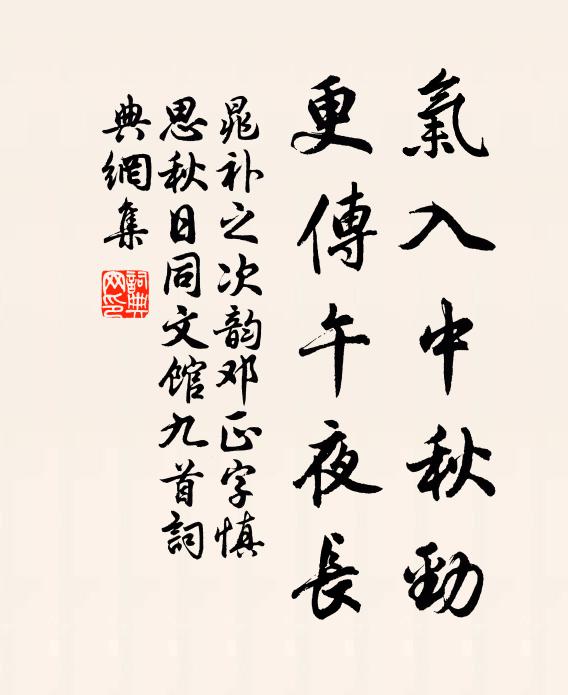 氣入中秋勁
更傳午夜長
晁补之次韵邓正字慎
思秋日同文馆九首詞
典網集
詞典
网印